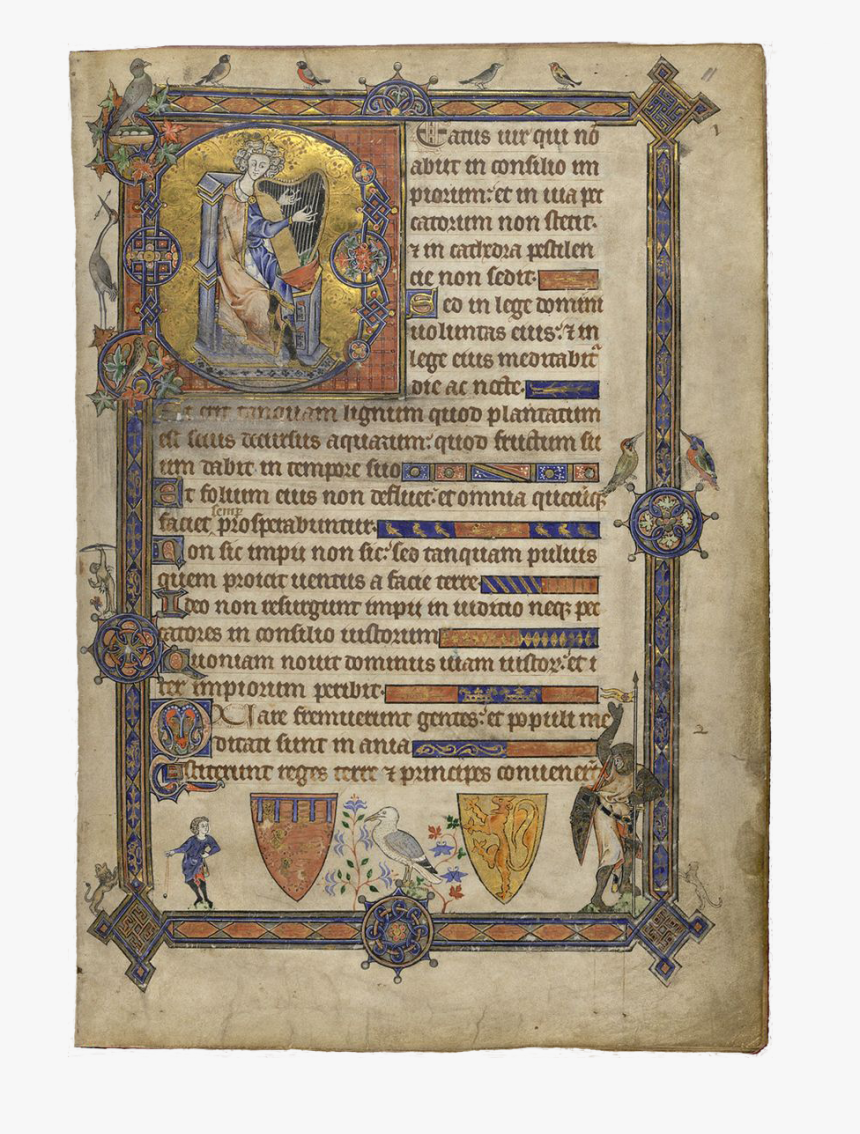 Eatus uir qui nō
abiit in consilio im
piorum: et in uia pec
catorum non stetit.
⁊ in cathedra pestilen
cie non sedit.
Sed in lege domini
uoluntas eius: ⁊ in
lege eius meditabitᷓ
die ac nocte.
Et erit tanquam lignum quod plantatum
est secus decursus aquarum: quod fructum su
um dabit in tempore suo
Et folium eius non defluet: et omnia quecūqꝫ
semꝑ
faciet prosperabuntur.
Non sic impii non sic: sed tanquam puluis
quem proicit uentus a facie terre
Ideo non resurgunt impii in iudicio neqꝫ pec
catores in consilio iustorum
Quoniam nouit dominus uiam iustoꝝ: et i
ter impiorum peribit.
QVare fremuerunt gentes: et populi me
ditati sunt inania
Astiterunt reges terre ⁊ principes conuenerūt
11
1
2